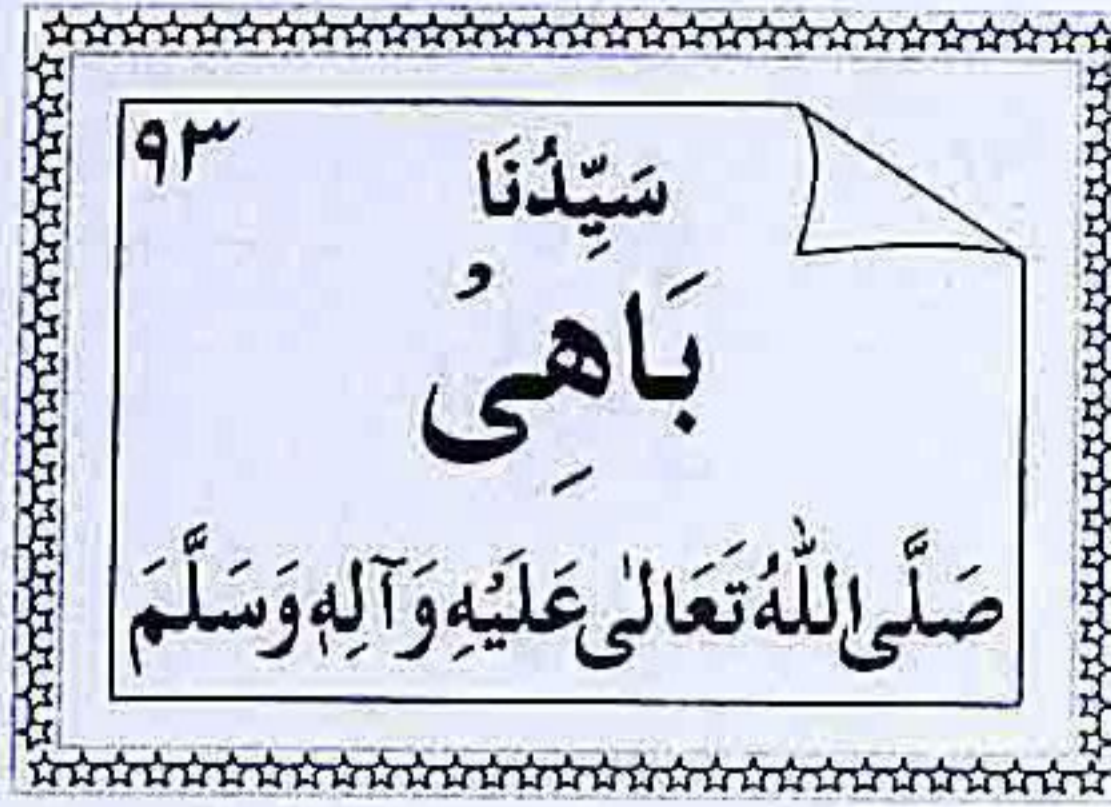 ۹۳
سَيِّدُنَا
بَاهِىُ
صَلَّى اللّٰهُ تَعَالٰى عَلَيْهِ وَآلِهٖ وَسَلَّمَ